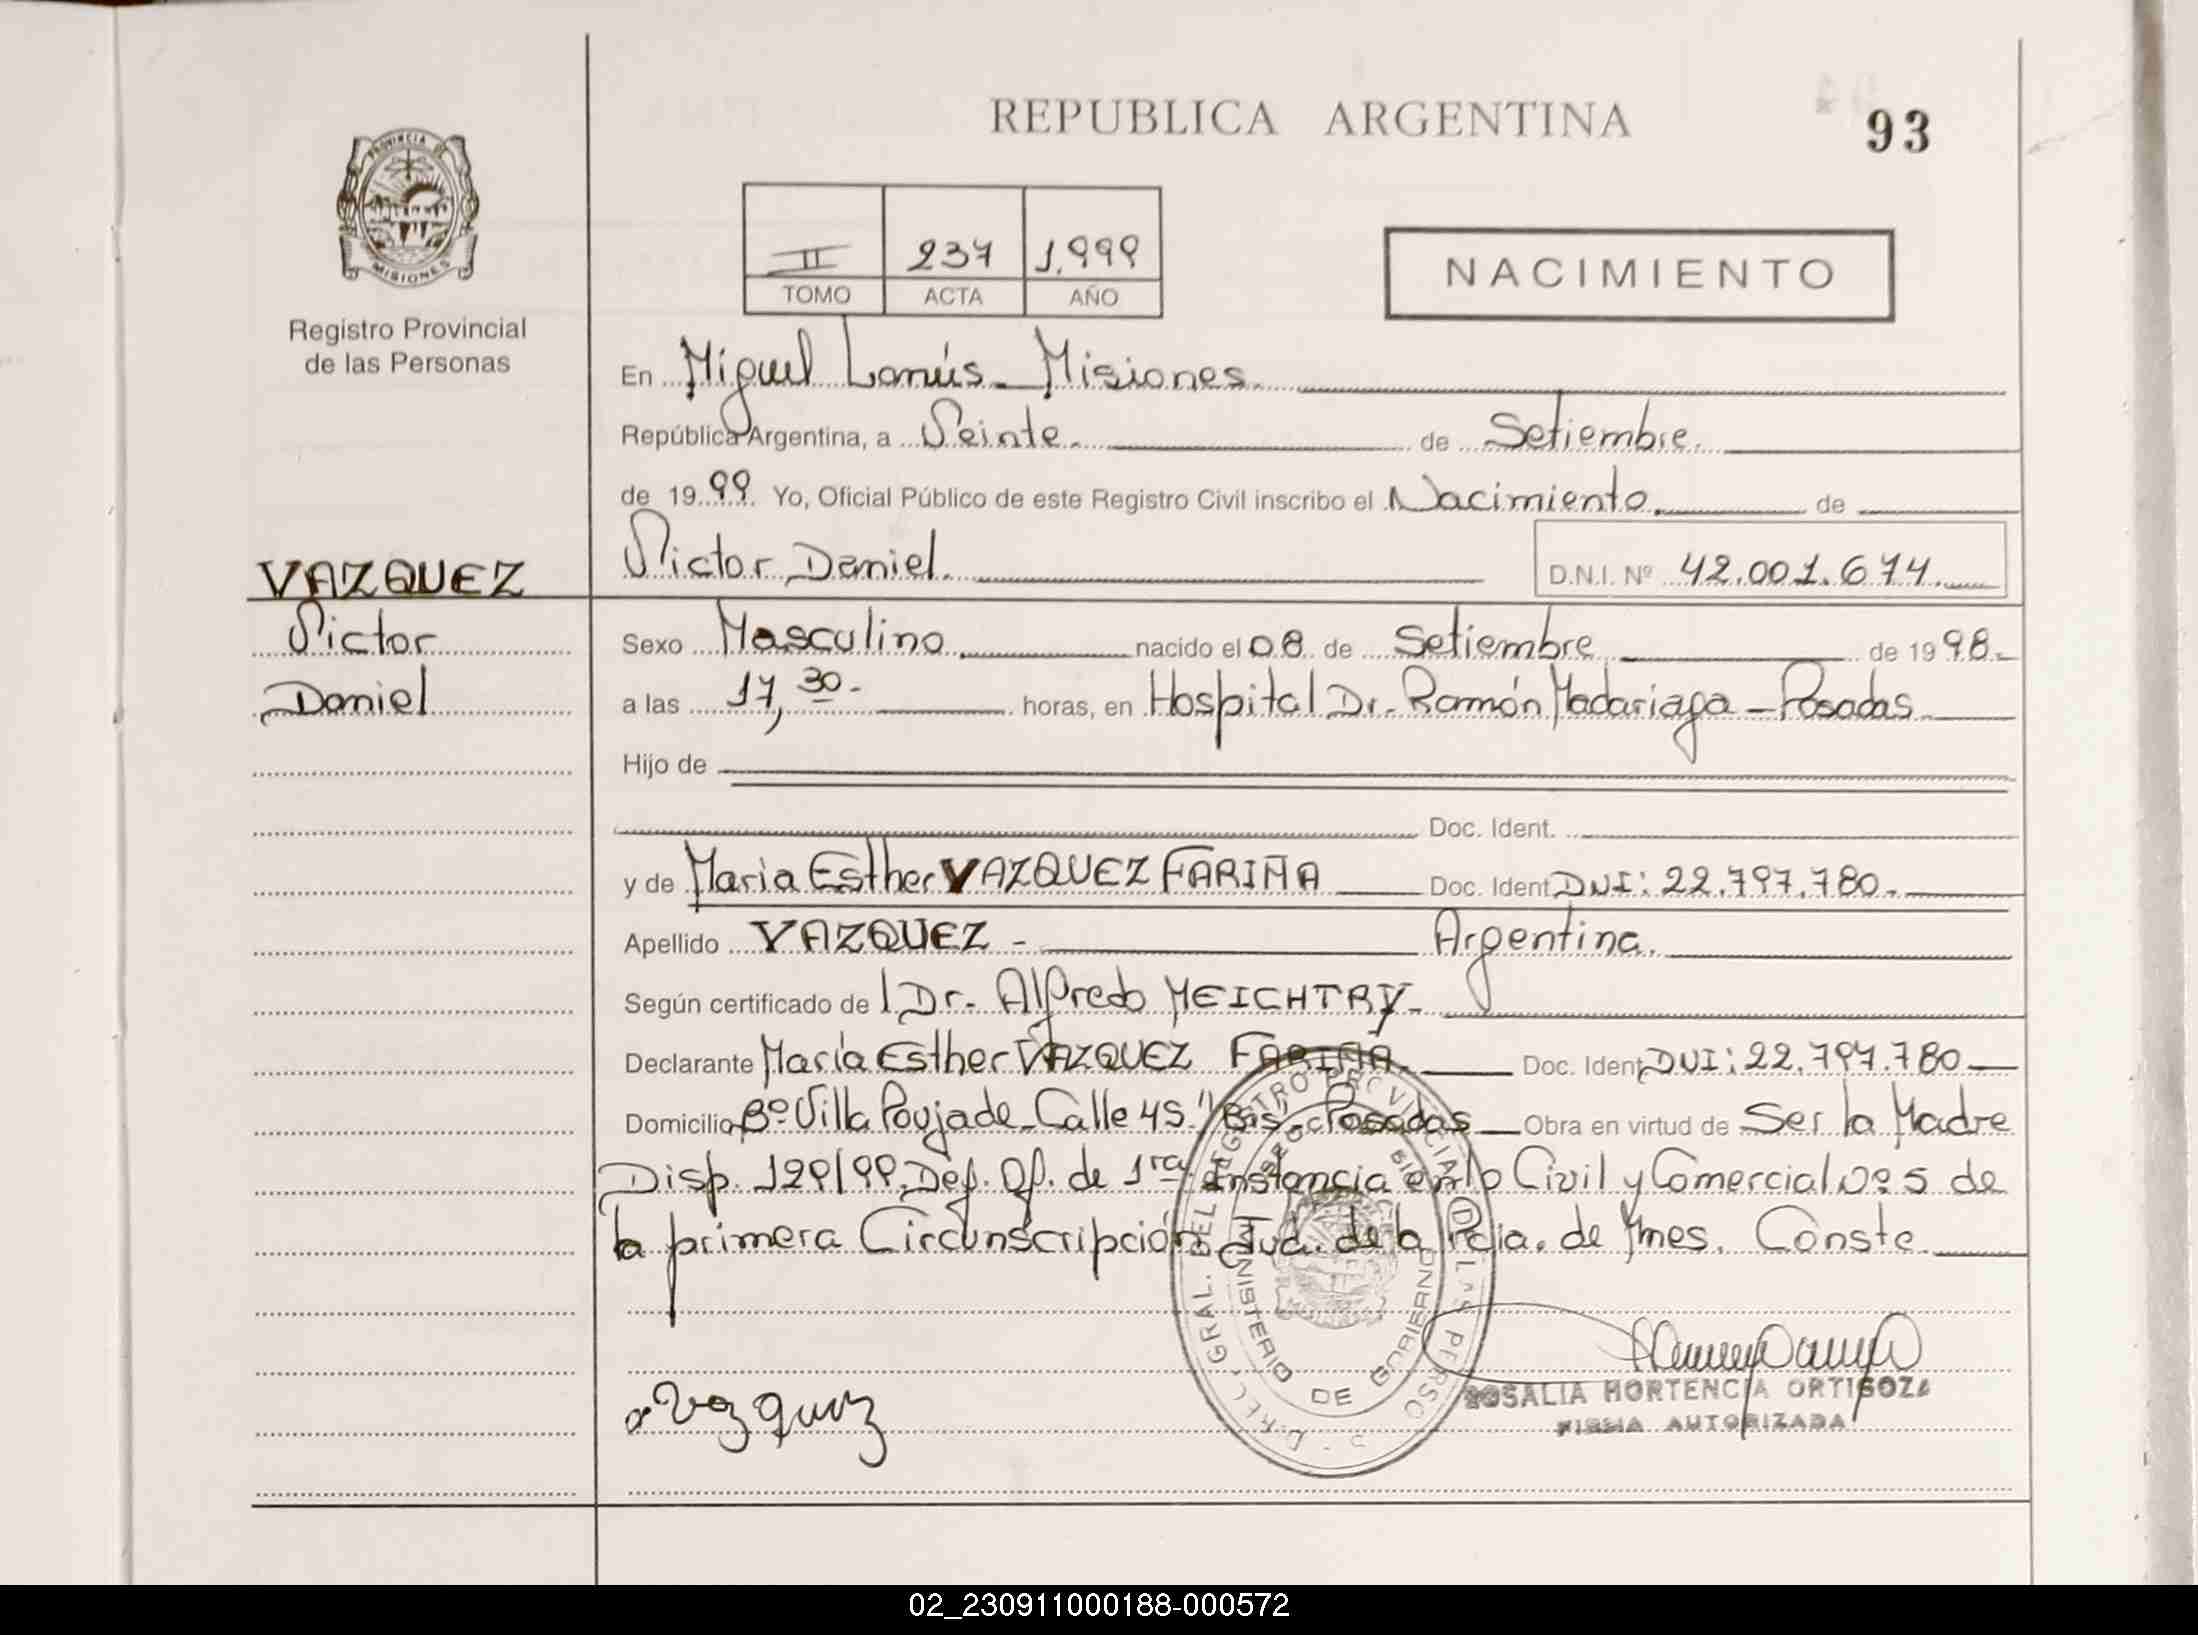 REPUBLICA ARGENTINA
93
PROVINCIA DE
MISIONES
Registro Provincial
de las Personas
II 237 1.999
TOMO ACTA AÑO
NACIMIENTO
En Miguel Lanús - Misiones.
República Argentina, a Veinte. de Setiembre.
de 1999 Yo, Oficial Público de este Registro Civil inscribo el Nacimiento. de
VAZQUEZ
Victor
Daniel
Victor Daniel. D.N.I. Nº 42.001.674.
Sexo Masculino nacido el 08 de Setiembre de 1998.-
a las 17,30.- horas, en Hospital Dr. Ramón Madariaga - Posadas
Hijo de
Doc. Ident.
y de Maria Esther VAZQUEZ FARIÑA Doc. Ident DNI: 22.797.780.-
Apellido VAZQUEZ - Argentina.
Según certificado de l Dr. Alfredo MEICHTRY-
Declarante María Esther VAZQUEZ FARIÑA. Doc. Ident DNI: 22.797.780
Domicilio Bº Villa Poujade - Calle 45 "Bis" - Posadas Obra en virtud de Ser la Madre
Disp. 129/99. Def. Of. de 1ra. Instancia en lo Civil y Comercial Nº 5 de
la primera Circunscripción Jud. de la Pcia. de Mnes. Conste.
DIREC. GRAL. DEL REGISTRO PROVINCIAL DE LAS PERSO
MINISTERIO DE GOBIERNO
Vazquez
ROSALIA HORTENCIA ORTIGOZA
FIRMA AUTORIZADA
02_230911000188-000572